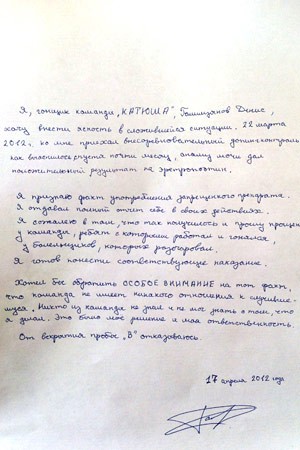 Я, гонщик команды "КАТЮША", Галимзянов Денис,
хочу внести ясность в сложившейся ситуации. 22 марта
2012г. ко мне приехал внесоревновательный допинг контроль
как выяснилось, спустя почти месяц, анализ мочи дал
положительный результат на эритропоэтин.
Я признаю факт употребления запрещенного препарата.
Я отдавал полный отчет себе в своих действиях.
Я сожалею о том, что так получилось и прошу прощения
у команды, ребят с которыми работал и гонялся,
и болельщиков, которых разочаровал.
Я готов понести соответствующее наказание.
Хотел бы обратить ОСОБОЕ ВНИМАНИЕ на тот факт,
что команда не имеет никакого отношения к случивше-
муся. Никто из команды не знал и не мог знать о том, что
я делал. Это было моё решение и моя ответственность.
От вскрытия пробы "В" отказываюсь.
17 апреля 2012 года